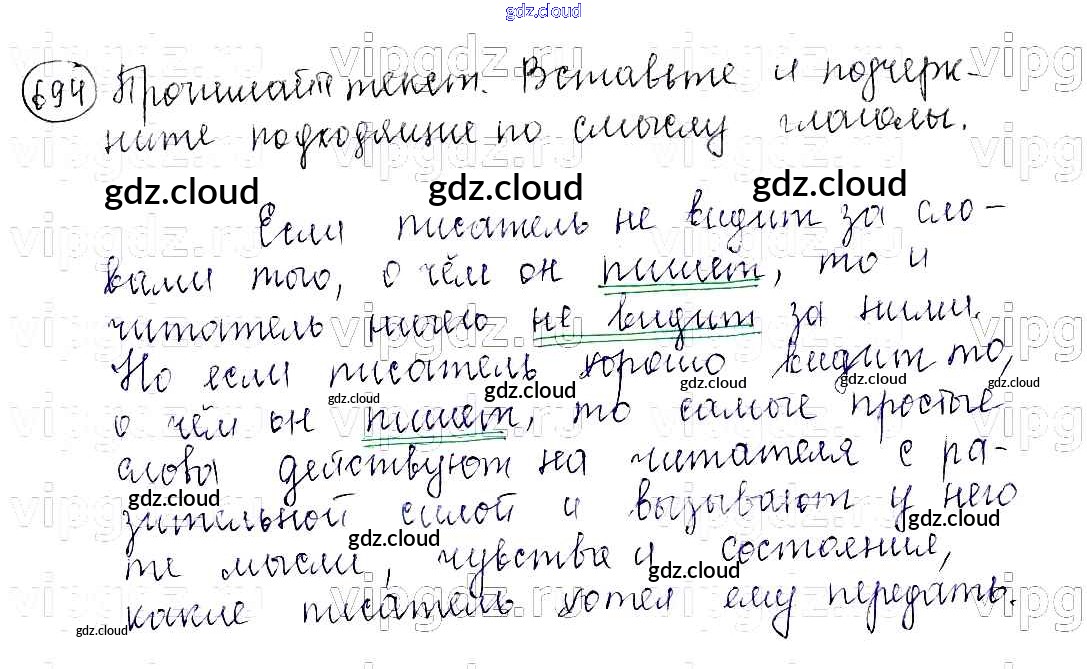 gdz.cloud
694 Прочитайте текст. Вставьте и подчерк-
ните подходящие по смыслу глаголы.
gdz.cloud gdz.cloud gdz.cloud
Если писатель не видит за сло-
вами того, о чём он пишет, то и
читатель ничего не видит за ними.
Но если писатель хорошо видит то,
gdz.cloud gdz.cloud gdz.cloud gdz.cloud gdz.cloud
о чём он пишет, то самые простые
слова действуют на читателя с ра-
gdz.cloud
зительной силой и вызывают у него
gdz.cloud gdz.cloud
те мысли, чувства и состояния,
gdz.cloud
какие писатель хотел ему передать.
gdz.cloud